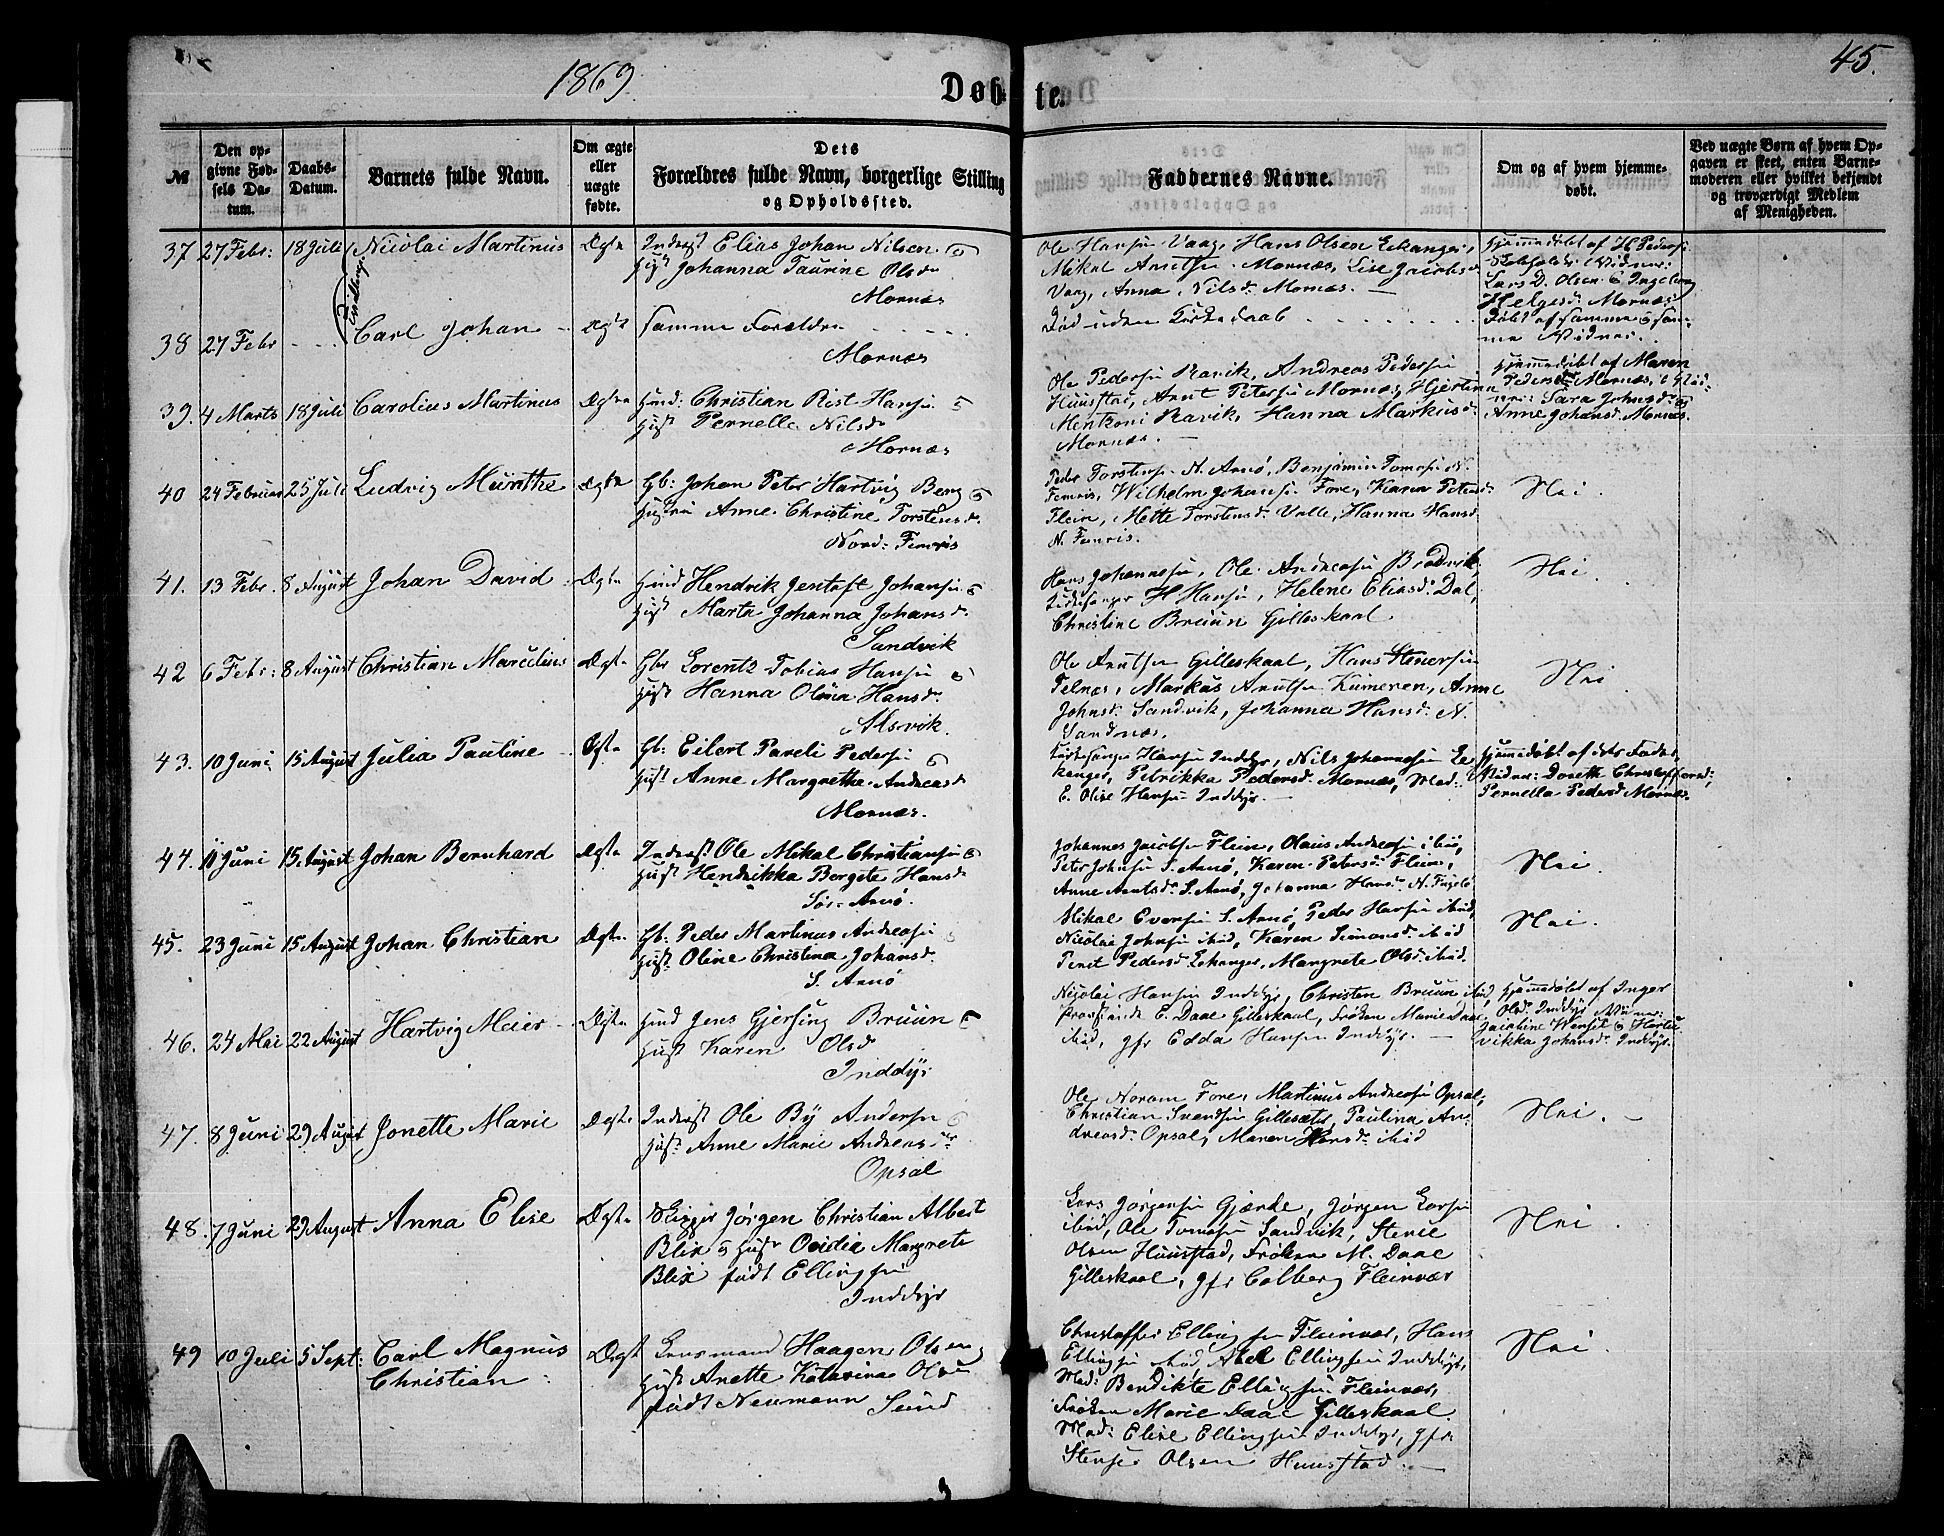 1869.
Døbte.
45.
№
Den opgivne Fødsels Datum.
Daabs-Datum.
Barnets fulde Navn.
Om ægte eller uægte fødte.
Dets Forældres fulde Navn, borgerlige Stilling og Opholdssted.
Faddernes Navne.
Om og af hvem hjemmedøbt.
Ved uægte Børn af hvem Opgaven er skeet, enten Barnemoderen eller hvilket bekjendt og troværdigt Medlem af Menigheden.
37 27 Febr: 18 Juli Nicolai Martinus Ægte Inderst Elias Johan Nilsen &
Hust Johanna Taurine Olsd
Mornæs
Ole Hansen Vaag, Hans Olsen Eckanger,
Mikal Arntsen Mornæs, Lise Jacobsd
Vaag, Anna Nilsd: Mornæs.
Hjemmedøbt af H. Peders:
Lars D. Olsen & Ingeborg
Helgesd: Mornæs
Tvillinger
38 27 Febr Carl Johan Ægte Samme Forældre
Mornæs
Død uden Kirkedaab
Døbt af samme & samme Vidner.
39. 4 Marts 18 Juli Carolius Martinus Ægte Husm: Christian Rist Hansen &
Hust Pernelle Nilsd
Mornæs
Ole Pedersen Ravik, Andreas Pedersen
Huustad, Arnt Petersen Mornæs, Hjertine
Menkoni Ravik, Hanna Markusd:
Mornæs.
Hjemmedøbt af Maren
Pedersd Mornæs, Vidner: Sara Johnsd: og
Anne Johansd. Mornæs.
40 24 Februar 25 Juli Ludvig Munthe Ægte Gb: Johan Peter Hartvig Berg &
Hustru Anne Christine Torstensd.
Nord: Femris
Peder Torstensen N. Arnø, Benjamin Tomasen N.
Femris, Wilhelm Johansen Fore, Karen Petersd:
Flein, Mette Torstensd: Valle, Hanna Hansd:
N. Femris.
Nei.
41. 13 Febr. 8 August Johan David Ægte Husm Hendrik Jentoft Johansen &
Hust Marta Johanna Johansd.
Sandvik
Hans Johannesen, Ole Andreasen Brødvik,
Kirkesanger H Hansen, Helene Eliasd: Dal,
Christine Bruun Gilleskaal.
Nei.
42 6 Febr: 8 August Christian Marelius Ægte Gbr Lorentz Tobias Hansen &
Hust Hanna Olava Hansd.
Alsvik.
Ole Arntsen Gilleskaal, Hans Stenersen
Felnæs, Markus Arntsen Kumeren, Anne
Johnsd: Sandvik, Johanna Hansd: N.
Sandnæs.
Nei
43. 10 Juni 15 August Julia Pauline Ægte Gb: Eilert Pareli Pedersen &
Hust Anne Margrethe Andreasd
Mornæs.
Kirkesanger Hansen Inddyr, Nils Johannesen Eckanger, Petrikka Pedersd: Mornæs, Mad:
E. Olise Hansen Inddyr.
Hjemmedøbt af dets Fader,
Vidner: Doreth Christoffersd:,
Pernella Pedersd Mornæs.
44. 11 Juni 15 August Johan Bernhard Ægte Inderst Ole Mikal Christiansen &
Hust Hendrikka Bergete Hansd
Sør-Arnø.
Johannes Jacobsen Flein, Olaus Andreasen ibid,
Peter Johnsen S. Arnø, Karen Petersd: Flein,
Anne Arntsd: S. Arnø, Johanna Hansd: N. Fugelø
Nei.
45. 23 Juni 15 August Johan Christian Ægte. Gb: Peder Martinus Andreasen &
Hust: Oline Christina Johansd:
S. Arnø
Mikal Eversen S. Arnø, Peder Hansen ibid,
Nicolai Johnsen ibid, Karen Simonsd: ibid
Penit Pedersd: Eckanger, Margrete Olsd: ibid.
Nei.
46. 24 Mai 22 August Hartvig Meier Ægte Husm Jens Gjersing Bruun &
Hust Karen Olsd
Inddyr
Nicolai Hansen Inddyr, Christen Bruun ibid,
Provstinde E. Daae Gilleskaal, Frøken Marie Daae
ibid, Jfr Edda Hansen Inddyr.
Hjemmedøbt af Inger
Olsd: Inddyr Vidner:
Jacobine Wensel & Hartvikka Johansd: Inddyr.
47. 8 Juni 29 August Jonette Marie Ægte Inderst Ole By Andersen &
Hust: Anne Marie Andreasdr
Opsal
Ole Noram Fore, Martinus Andreasen Opsal,
Christian Svendsen Gillesæter, Paulina Andreasd: Opsal, Maren Hansd: ibid
Nei.
48. 7 Juni 29 August Anna Elise Ægte Skipper Jørgen Christian Albert
Blix & Hust Ovidia Margrete
Blix født Ellingsen
Inddyr
Lars Jørgensen Gjærde, Jørgen Larsen
ibid, Ole Tomasen Sandvik, Stene
Olsen Huustad, Frøken M. Daae
Gilleskaal, Jfr Colberg Fleinvær
Nei.
49 10 Juli 5 Sept: Carl Magnus
Christian
Ægte Lensmand Haagen Olsen &
Hust Anette Katarina Olsen
født Neumann Sund
Christoffer Ellingsen Fleinvær, Hans
Ellingsen ibid, Abel Ellingsen Inddyr,
Mad: Bendikte Ellingsen Fleinvær,
Frøken Marie Daae Gilleskaal.
Mad: Elise Ellingsen Inddyr, Jfr
Stenser Olsen Huustad.
Nei.